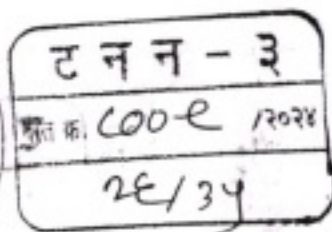 ट न न - ३
दस्त क्र. ८००९ /२०२४
२६/३५